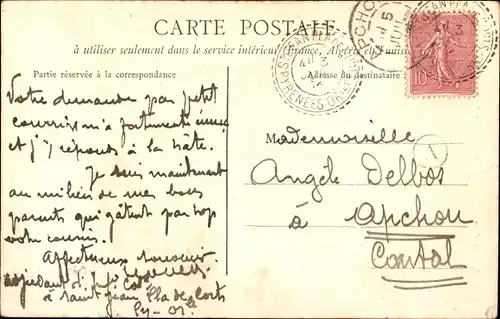 CARTE POSTALE
à utiliser seulement dans le service intérieur (France, Algérie et Tunisie
Partie réservée à la correspondance
Adresse du destinataire
Votre demande par petit
courrier m'a
et j'y réponds à la hâte.
Je suis maintenant
au milieu de mes bons
parents qui gâtent par trop
votre cousin.
Affectueux souvenir
à Saint Jean Pla de Corts
Py-Or
Mademoiselle
Angèle Delbos
à Apchon
Cantal
10
PYRÉNÉES-OR